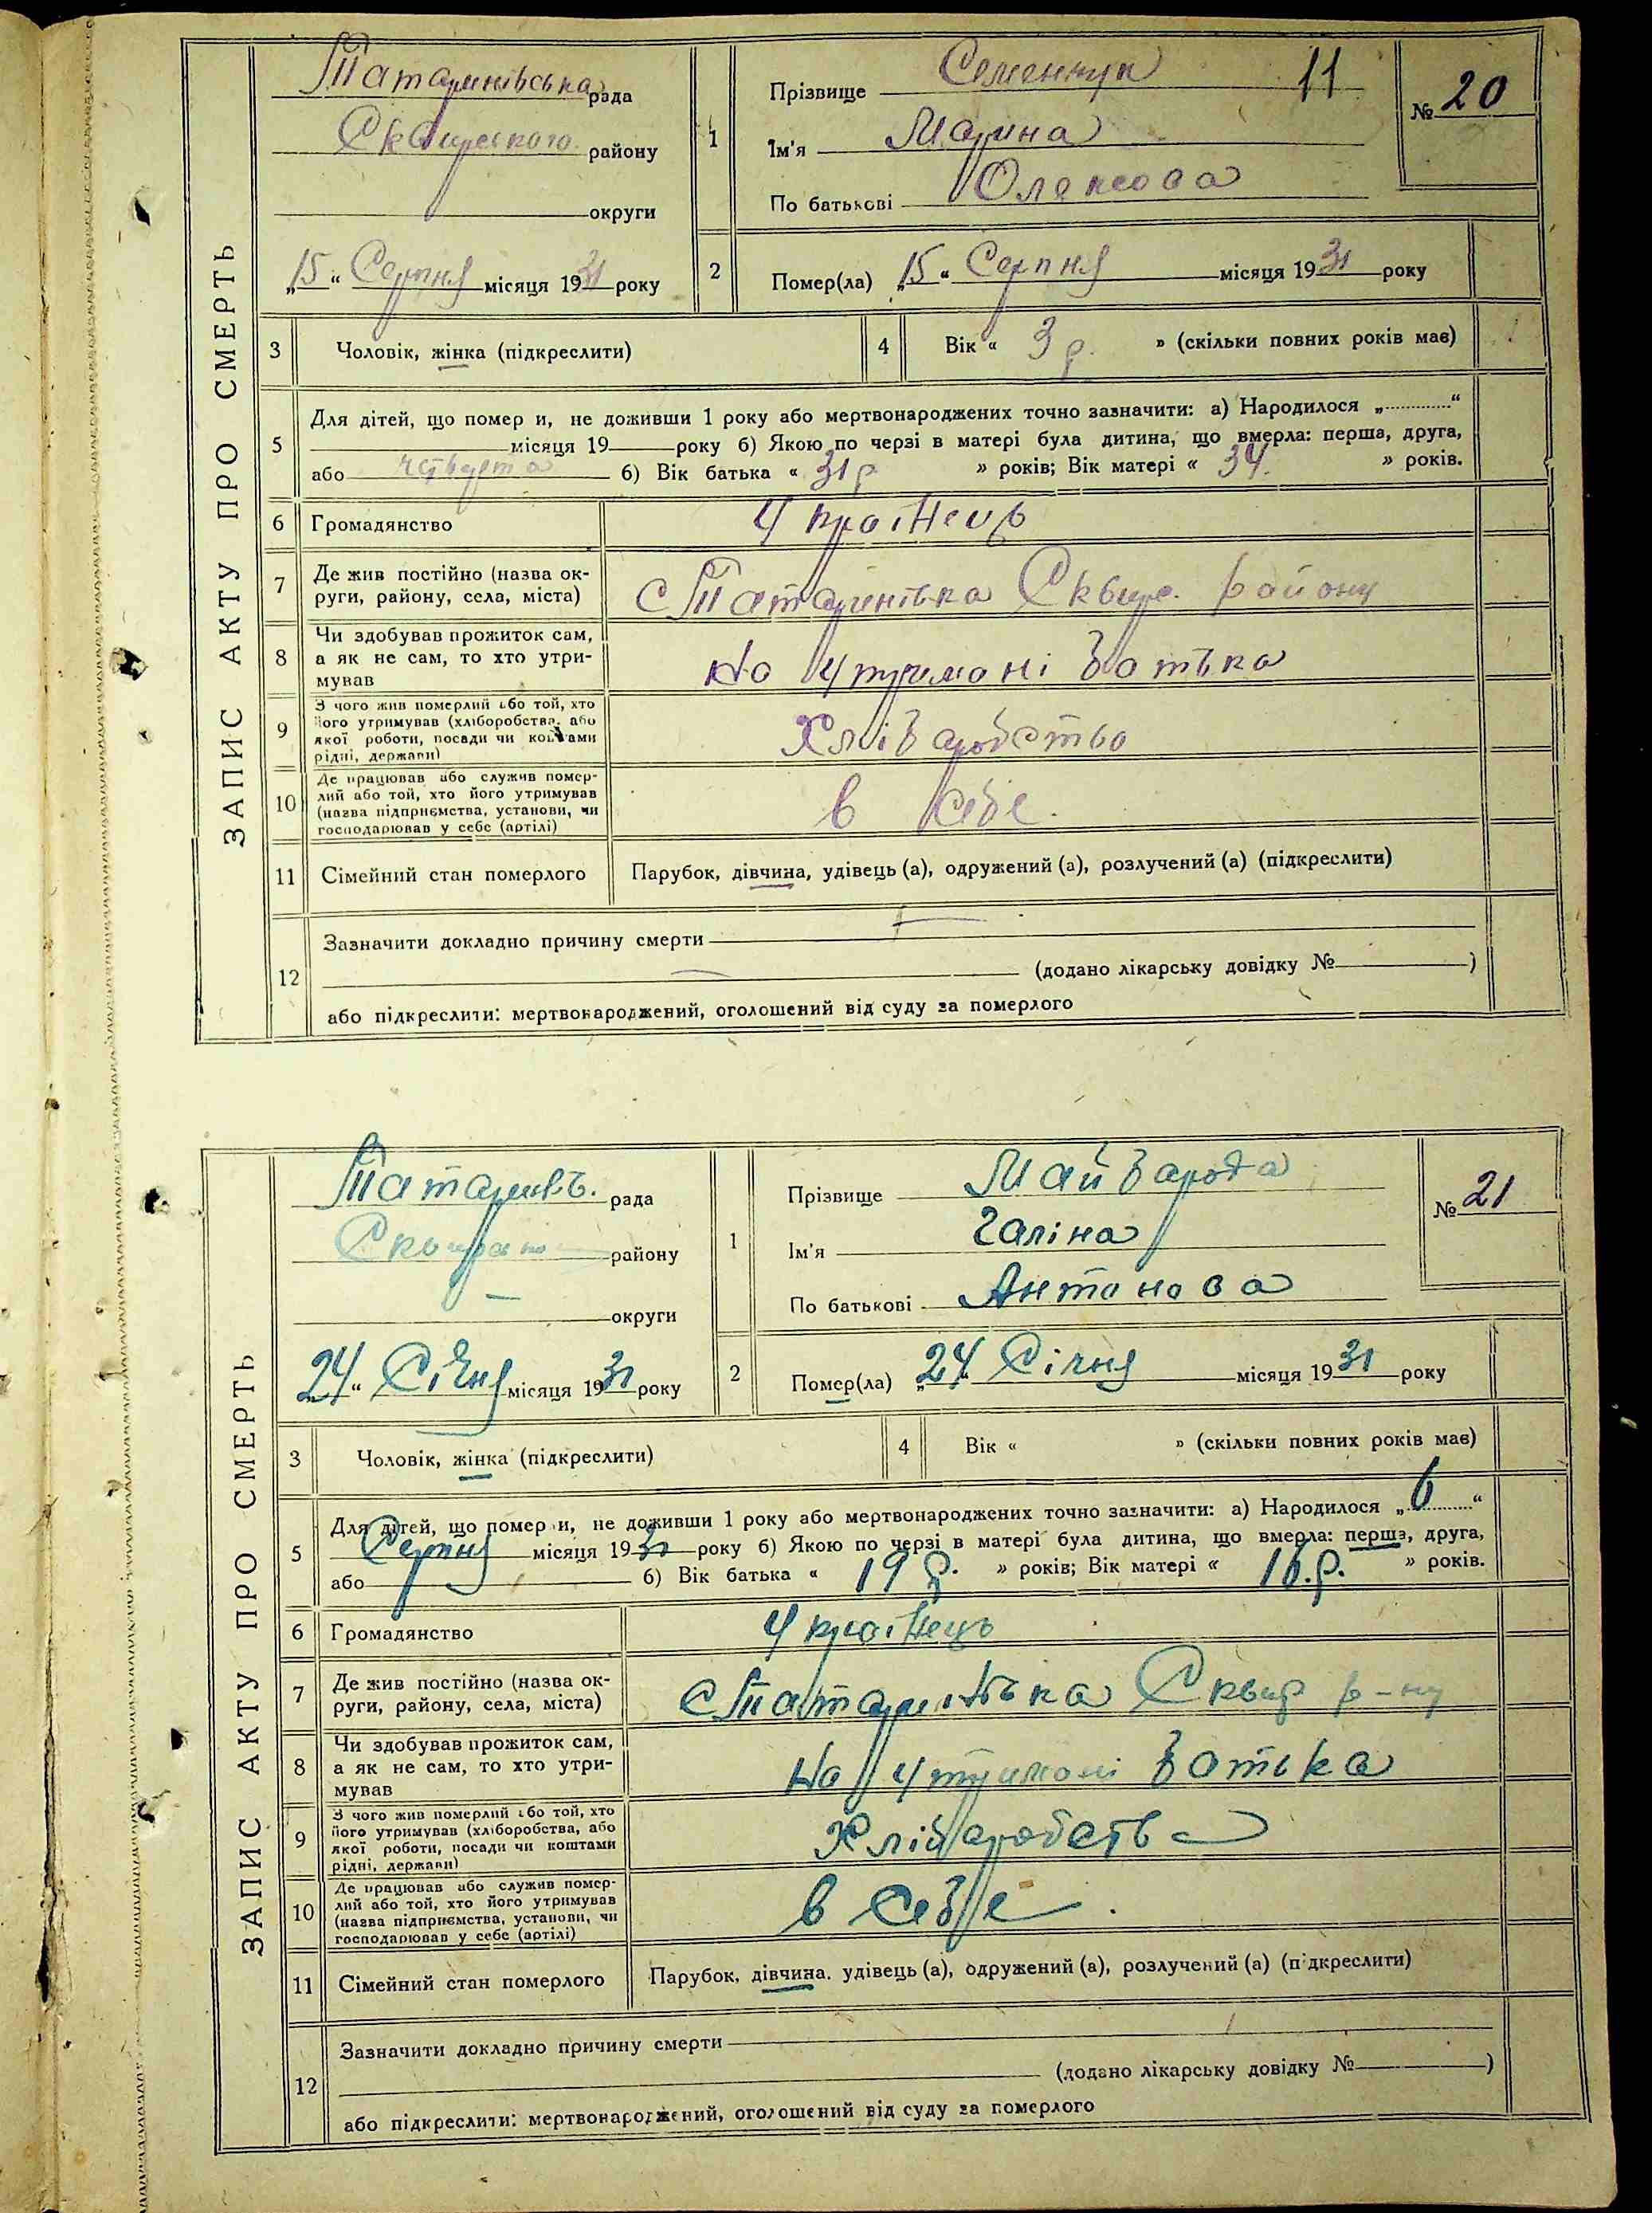 ЗАПИС АКТУ ПРО СМЕРТЬ
Татаринівська рада
Сквирського району
округи
„15“ Серпня місяця 1931 року
1
Прізвище Семенчук 11
Ім'я Марина
По батькові Олексова
№ 20
2
Помер(ла) „15“ Серпня місяця 1931 року
3 Чоловік, жінка (підкреслити)
4 Вік « 3 р. » (скільки повних років має)
5
Для дітей, що помер и, не доживши 1 року або мертвонароджених точно зазначити: а) Народилося „ “
місяця 19 року б) Якою по черзі в матері була дитина, що вмерла: перша, друга,
або четверта б) Вік батька « 31 р » років; Вік матері « 34. » років.
6 Громадянство Українець
7 Де жив постійно (назва ок-
руги, району, села, міста)
с Татаринівка Сквир. району
8 Чи здобував прожиток сам,
а як не сам, то хто утри-
мував
на утримані батька
9 З чого жив померлий або той, хто
його утримував (хліборобства, або
якої роботи, посади чи коштами
рідні, держави)
Хліборобство
10 Де працював або служив помер-
лий або той, хто його утримував
(назва підприємства, установи, чи
господарював у себе (артілі)
в себе.
11 Сімейний стан померлого Парубок, дівчина, удівець (а), одружений (а), розлучений (а) (підкреслити)
12
Зазначити докладно причину смерти
(додано лікарську довідку № )
або підкреслити: мертвонароджений, оголошений від суду за померлого
ЗАПИС АКТУ ПРО СМЕРТЬ
Татаринівъ. рада
району
округи
„24“ Січня місяця 1931 року
1
Прізвище Майборода
Ім'я Галіна
По батькові Антонова
№ 21
2
Помер(ла) „24“ Січня місяця 1931 року
3 Чоловік, жінка (підкреслити)
4 Вік « » (скільки повних років має)
5
Для дітей, що помер и, не доживши 1 року або мертвонароджених точно зазначити: а) Народилося „6“
Серпня місяця 19 року б) Якою по черзі в матері була дитина, що вмерла: перша, друга,
або б) Вік батька « 19 р. » років; Вік матері « р. » років.
6 Громадянство Українець
7 Де жив постійно (назва ок-
руги, району, села, міста)
с Татаринівка Сквир р-ну
8 Чи здобував прожиток сам,
а як не сам, то хто утри-
мував
на утримані батька
9 З чого жив померлий або той, хто
його утримував (хліборобства, або
якої роботи, посади чи коштами
рідні, держави)
Хліборобств
10 Де працював або служив помер-
лий або той, хто його утримував
(назва підприємства, установи, чи
господарював у себе (артілі)
в себе.
11 Сімейний стан померлого Парубок, дівчина, удівець (а), одружений (а), розлучений (а) (підкреслити)
12
Зазначити докладно причину смерти
(додано лікарську довідку № )
або підкреслити: мертвонароджений, оголошений від суду за померлого